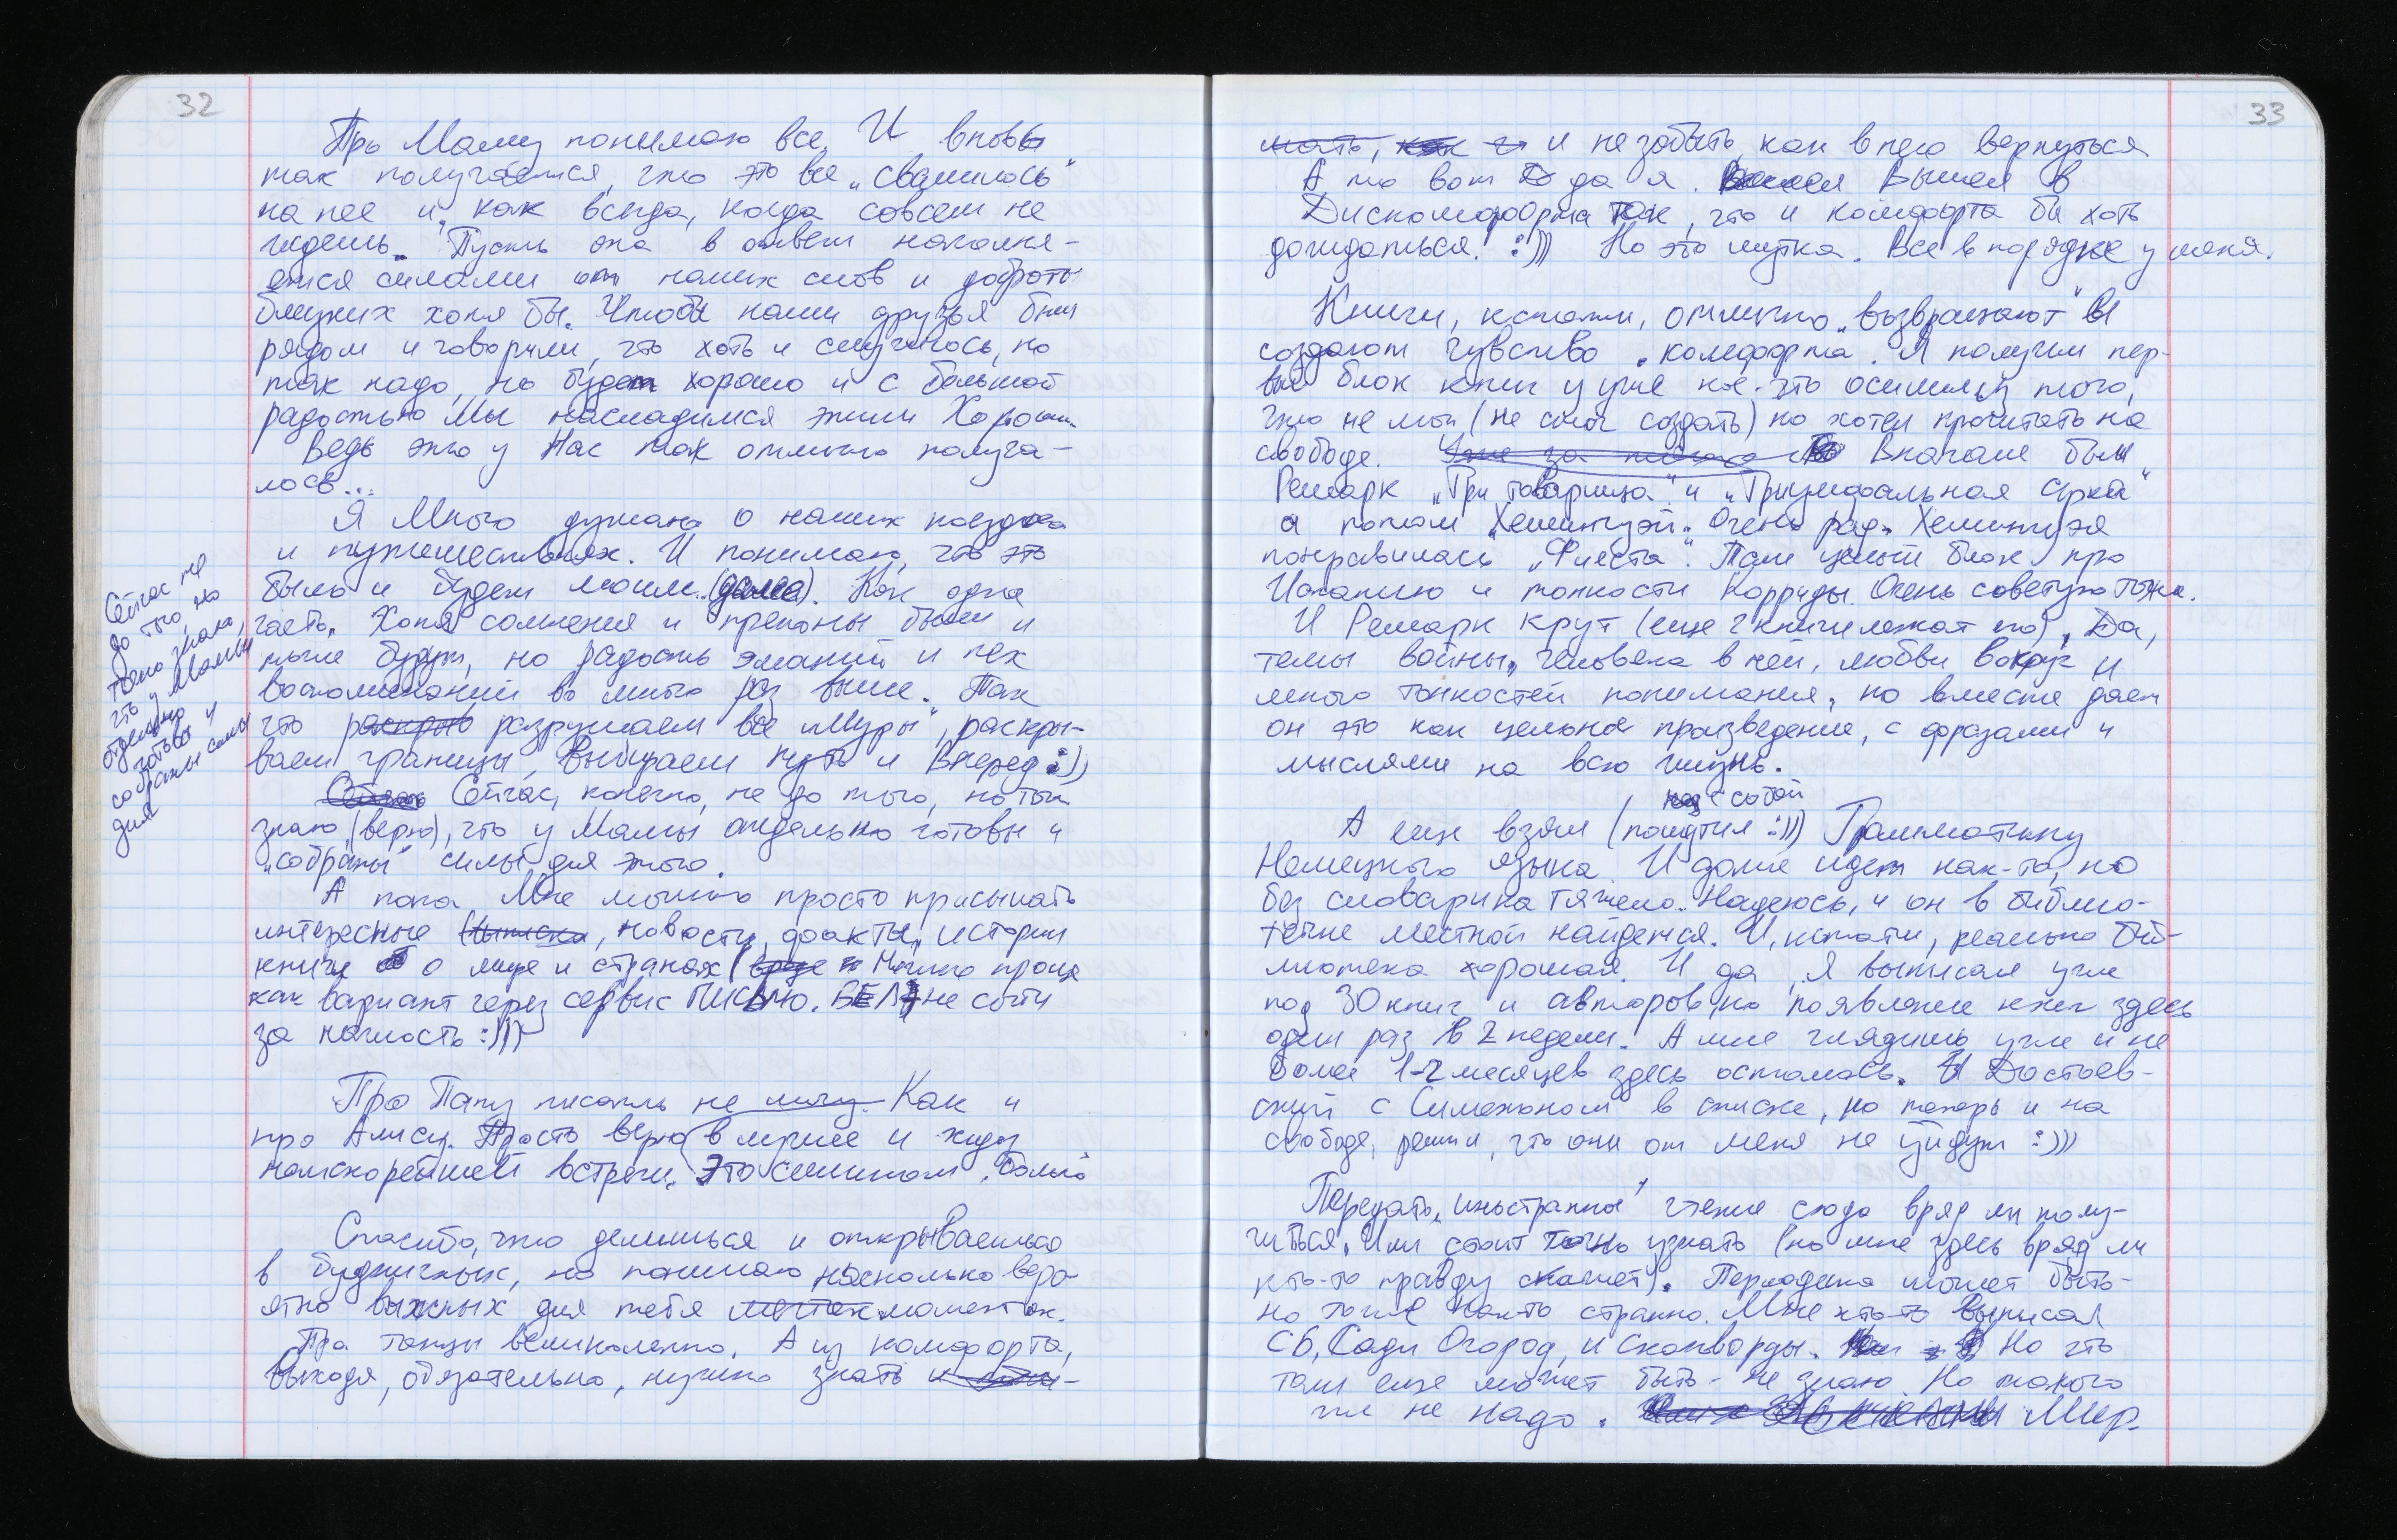 32
Про Маму понимаю все. И вновь
так получается, что это все „свалилось"
на нее и, как всегда, когда совсем не
ждешь. Пусть она в ответ наполня-
ется силами от наших слов и доброты
близких хотя бы. Чтобы наши друзья были
рядом и говорили, что хоть и случилось, но
так надо, но будет хорошо и с большой
радостью Мы насладимся этим Хорошим
Ведь это у Нас так отлично получа-
лось...
Я Много думаю о наших поездках
и путешествиях. И понимаю, что это
было и будет моим. Как одна
часть. Хотя сомнения и препоны были и
тоже будут, но радость эмоций и тех
воспоминаний во много раз выше. Так
что разрушаем все „Муры", раскры-
ваем границы, Выбираем путь и Вперед :))
Сейчас, конечно, не до того, но точно
знаю, (верю), что у Мамы отдельно готовы и
„собраны" силы для этого.
Сейчас не
до того, но
точно знаю,
что у Мамы
отдельно
готовы и
собраны силы
для
А пока Мне можно просто присылать
интересные новости, факты, истории
книги о мире и странах. Можно проще
как вариант через сервис ПИСЬМО.БЕЛ, не сочти
за наглость :)))
Про Папу писать не могу. Как и
про Алису. Просто верю в лучшее и жду
наискорейшей встречи. Это слишком больно
Спасибо, что делишься и открываешься
в будничных, но понимаю насколько веро-
ятно важных для тебя моментах.
Про танцы великолепно. А из комфорта,
выходя, обязательно, нужно знать
33
и не забыть как в него вернуться
А то вот да я. Вышел в
Дискомфорта так, что и комфорта бы хоть
дождаться! :))) Но это шутка. Все в порядке у меня.
Книги, кстати, отлично „возвращают" и
создают чувство „комфорта". Я получил пер-
вый блок книг и уже кое-что осилил из того,
что не мог (не смог создать) но хотел прочитать на
свободе. Вначале был
Ремарк „Три товарища" и „Триумфальная Арка"
а потом „Хемингуэй". Очень рад. Хемингуэя
понравилась „Фиеста". Там целый блок про
Испанию и тонкости Корриды. Очень советую тоже.
И Ремарк крут (еще 2 книги лежат его). Да,
темы войны, человека в ней, любви вокруг и
много тонкостей понимания, но вместе дает
он это как цельное произведение, с фразами и
мыслями на всю жизнь.
А еще взял (пошутил над собой :))) Грамматику
Немецкого языка. И даже идет как-то, но
без словарика тяжело. Надеюсь, и он в библио-
течке местной найдется. И, кстати, реально биб-
лиотека хорошая. И да, я выписал уже
под 30 книг и авторов, но появление книг здесь
один раз в 2 недели. А мне глядишь уже и не
более 1-2 месяцев здесь осталось. И Достоев-
ский с Сименоном в списке, но теперь и на
свободе, решил, что они от меня не уйдут :)))
Передать „иностранное" чтение сюда вряд ли полу-
читься. Или стоит точно узнать (но мне здесь вряд ли
кто-то правду скажет). Периодика может быть-
но тоже как-то странно. Мне кто-то выписал
СБ, Сад и Огород, и Сканворды. Но что
там еще может быть - не знаю. Но такого
уж не надо. Мир